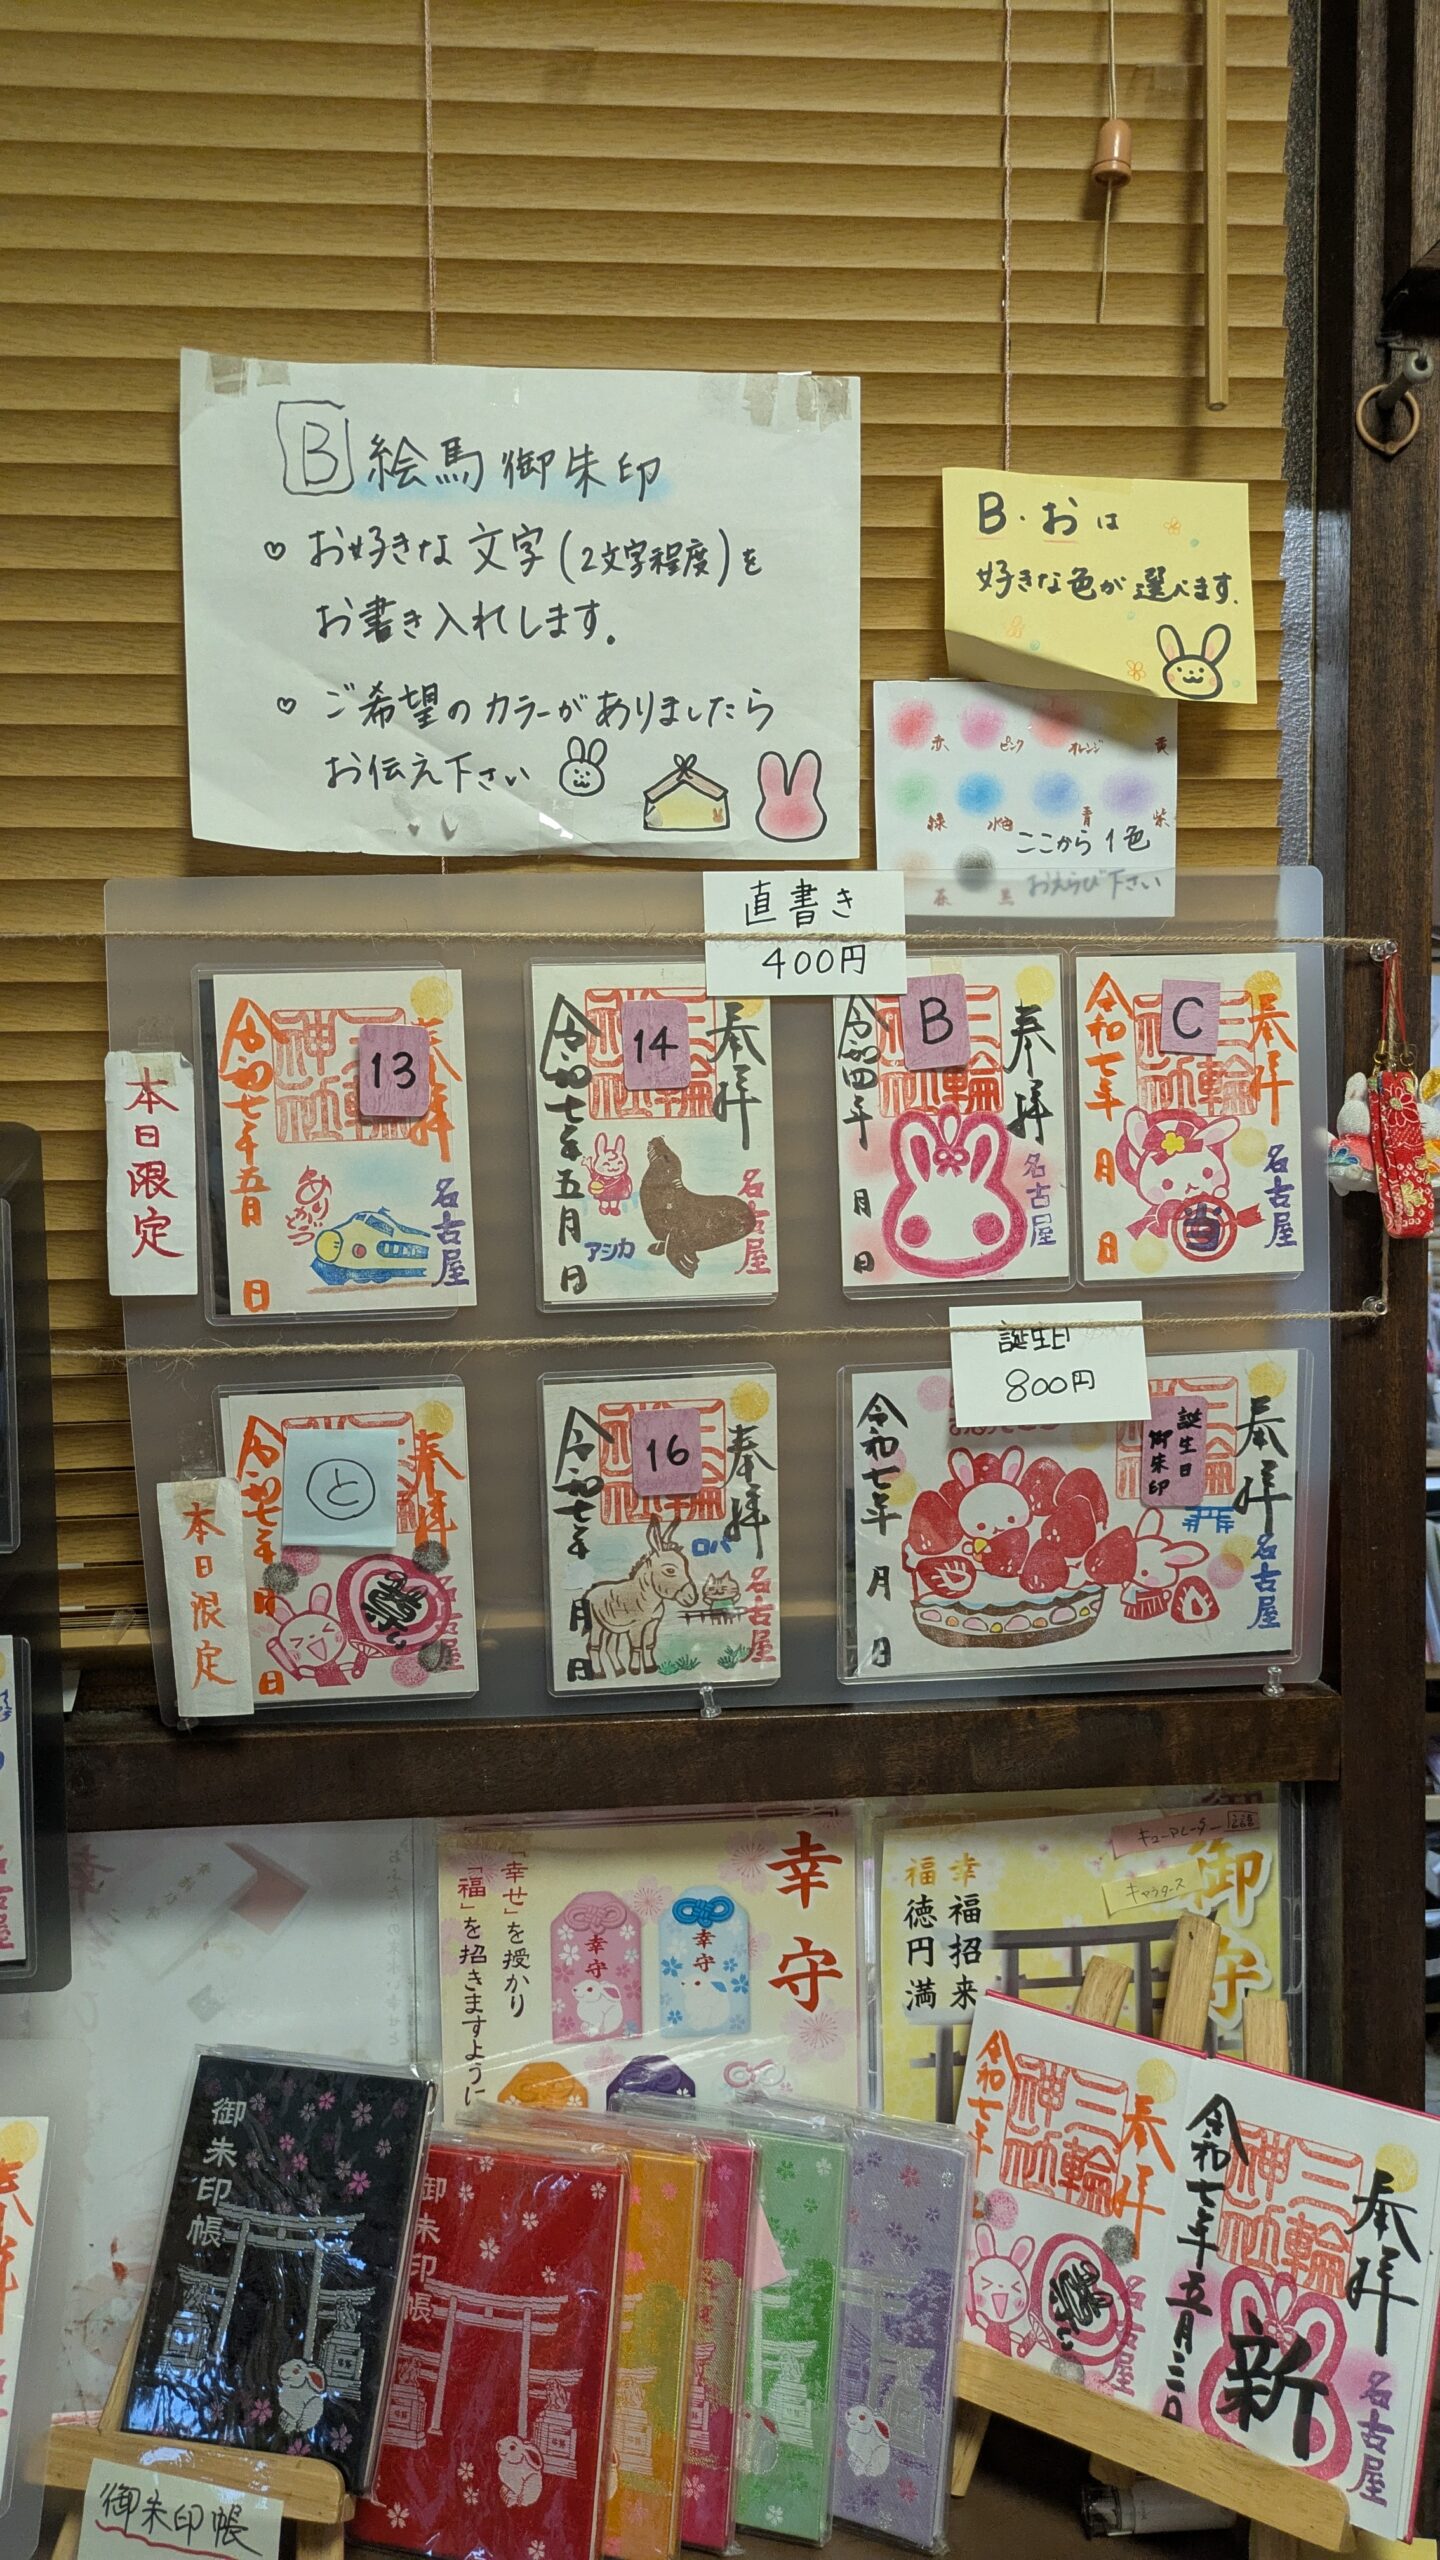 B 絵馬御朱印
♡ お好きな文字(2文字程度)を
お書き入れします。
♡ ご希望のカラーがありましたら
お伝え下さい
B・おは
好きな色が選べます.
赤 ピンク オレンジ 黄
緑 水色 青 紫
茶 黒
ここから1色
おえらび下さい
直書き
400円
本日限定
13
奉拝
三輪神社
令和七年五月 日
ありがとう
名古屋
14
奉拝
三輪神社
令和七年五月 日
アシカ
名古屋
B
奉拝
三輪神社
令和四年 月 日
名古屋
C
奉拝
三輪神社
令和七年 月 日
当
名古屋
誕生日
800円
本日限定
と
奉拝
令和七年 月 日
名古屋
16
奉拝
三輪神社
令和七年 月 日
ロバ
名古屋
誕生日
御朱印
奉拝
令和七年 月 日
名古屋
幸守
「幸せ」を授かり
「福」を招きますように
幸守
幸守
御守
幸福招来
福徳円満
キャラクターズ
御朱印帳
御朱印帳
御朱印帳
奉拝
三輪神社
令和七年
名古屋
奉拝
三輪神社
令和七年五月二〇日
新
名古屋